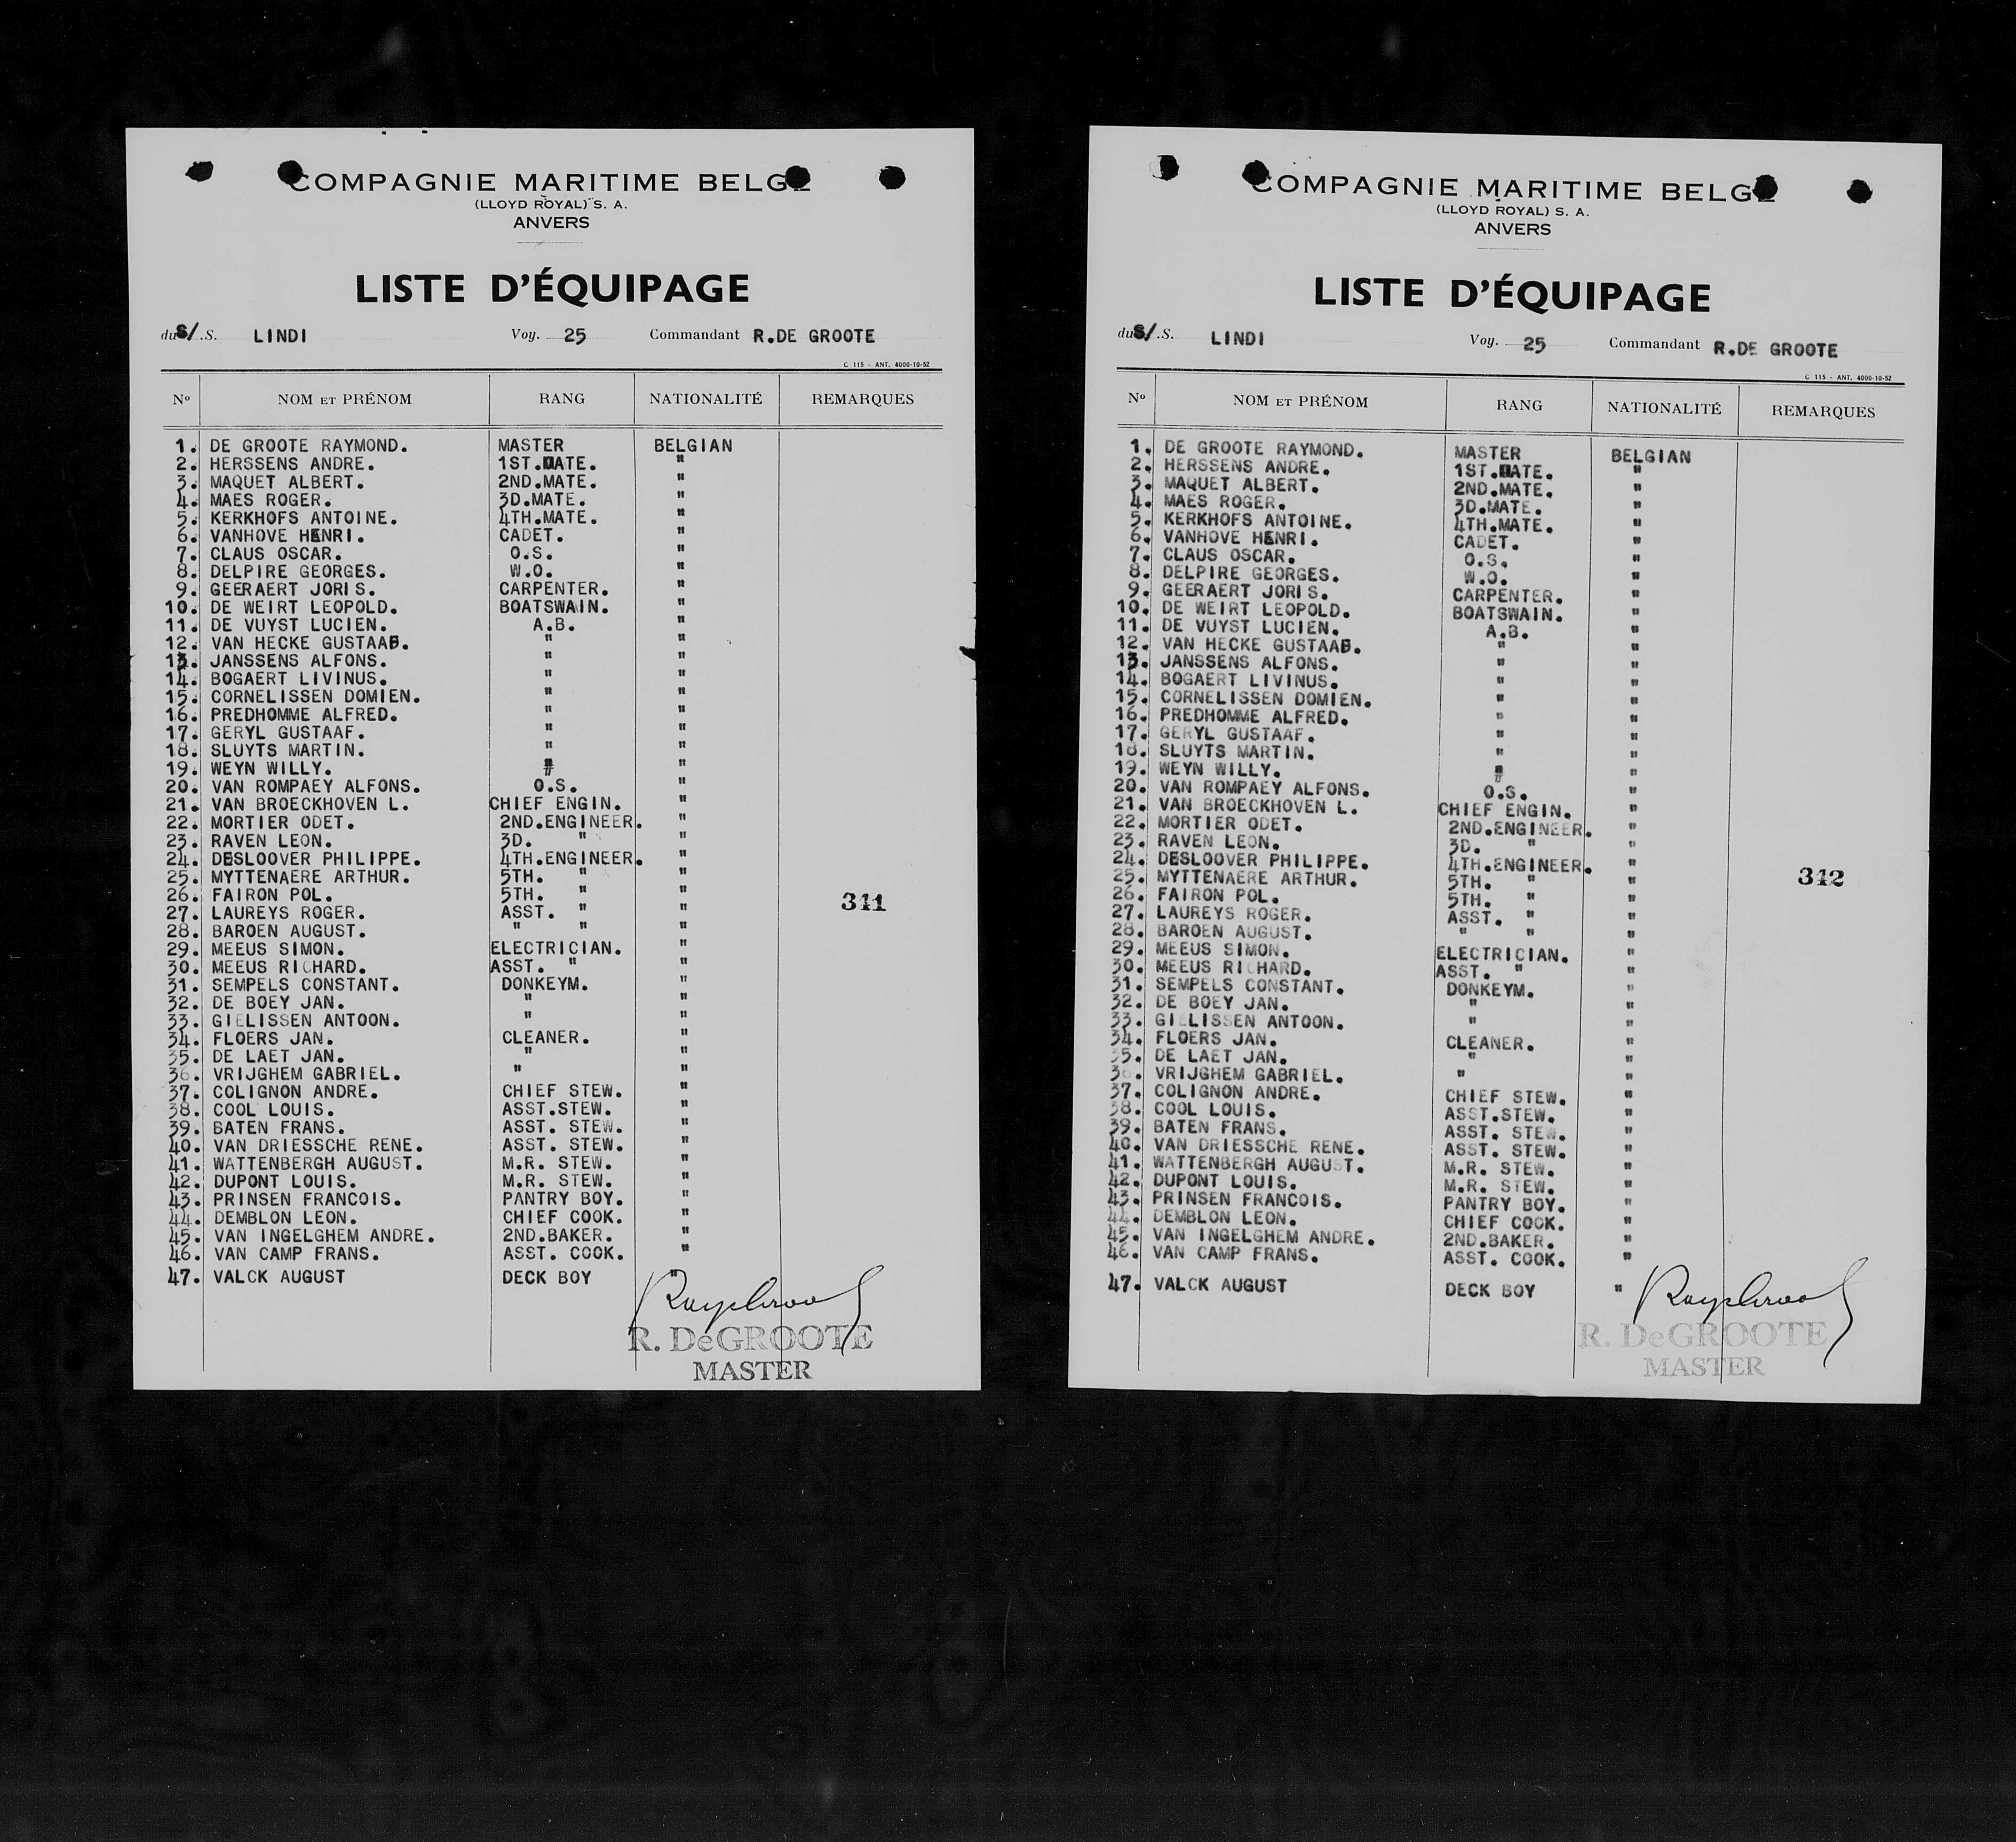 COMPAGNIE MARITIME BELGE
(LLOYD ROYAL) S. A.
ANVERS
LISTE D'ÉQUIPAGE
du S/.S. LINDI Voy. 25 Commandant R.DE GROOTE
C 115 - ANT. 4000-10-52
Nº NOM ET PRÉNOM RANG NATIONALITÉ REMARQUES
1. DE GROOTE RAYMOND. MASTER BELGIAN
2. HERSSENS ANDRE. 1ST.MATE. "
3. MAQUET ALBERT. 2ND.MATE. "
4. MAES ROGER. 3D.MATE. "
5. KERKHOFS ANTOINE. 4TH.MATE. "
6. VANHOVE HENRI. CADET. "
7. CLAUS OSCAR. O.S. "
8. DELPIRE GEORGES. W.O. "
9. GEERAERT JORIS. CARPENTER. "
10. DE WEIRT LEOPOLD. BOATSWAIN. "
11. DE VUYST LUCIEN. A.B. "
12. VAN HECKE GUSTAAB. " "
13. JANSSENS ALFONS. " "
14. BOGAERT LIVINUS. " "
15. CORNELISSEN DOMIEN. " "
16. PREDHOMME ALFRED. " "
17. GERYL GUSTAAF. " "
18. SLUYTS MARTIN. " "
19. WEYN WILLY. " "
20. VAN ROMPAEY ALFONS. O.S. "
21. VAN BROECKHOVEN L. CHIEF ENGIN. "
22. MORTIER ODET. 2ND.ENGINEER. "
23. RAVEN LEON. 3D. " "
24. DESLOOVER PHILIPPE. 4TH.ENGINEER. "
25. MYTTENAERE ARTHUR. 5TH. " "
26. FAIRON POL. 5TH. " "
27. LAUREYS ROGER. ASST. " " 341
28. BAROEN AUGUST. " " "
29. MEEUS SIMON. ELECTRICIAN. "
30. MEEUS RICHARD. ASST. " "
31. SEMPELS CONSTANT. DONKEYM. "
32. DE BOEY JAN. " "
33. GIELISSEN ANTOON. " "
34. FLOERS JAN. CLEANER. "
35. DE LAET JAN. " "
36. VRIJGHEM GABRIEL. " "
37. COLIGNON ANDRE. CHIEF STEW. "
38. COOL LOUIS. ASST.STEW. "
39. BATEN FRANS. ASST. STEW. "
40. VAN DRIESSCHE RENE. ASST. STEW. "
41. WATTENBERGH AUGUST. M.R. STEW. "
42. DUPONT LOUIS. M.R. STEW. "
43. PRINSEN FRANCOIS. PANTRY BOY. "
44. DEMBLON LEON. CHIEF COOK. "
45. VAN INGELGHEM ANDRE. 2ND.BAKER. "
46. VAN CAMP FRANS. ASST. COOK. "
47. VALCK AUGUST DECK BOY "
R. DeGROOTE
MASTER
COMPAGNIE MARITIME BELGE
(LLOYD ROYAL) S. A.
ANVERS
LISTE D'ÉQUIPAGE
du S/.S. LINDI Voy. 25 Commandant R.DE GROOTE
C 115 - ANT. 4000-10-52
Nº NOM ET PRÉNOM RANG NATIONALITÉ REMARQUES
1. DE GROOTE RAYMOND. MASTER BELGIAN
2. HERSSENS ANDRE. 1ST.MATE. "
3. MAQUET ALBERT. 2ND.MATE. "
4. MAES ROGER. 3D.MATE. "
5. KERKHOFS ANTOINE. 4TH.MATE. "
6. VANHOVE HENRI. CADET. "
7. CLAUS OSCAR. O.S. "
8. DELPIRE GEORGES. W.O. "
9. GEERAERT JORIS. CARPENTER. "
10. DE WEIRT LEOPOLD. BOATSWAIN. "
11. DE VUYST LUCIEN. A.B. "
12. VAN HECKE GUSTAAB. " "
13. JANSSENS ALFONS. " "
14. BOGAERT LIVINUS. " "
15. CORNELISSEN DOMIEN. " "
16. PREDHOMME ALFRED. " "
17. GERYL GUSTAAF. " "
18. SLUYTS MARTIN. " "
19. WEYN WILLY. " "
20. VAN ROMPAEY ALFONS. O.S. "
21. VAN BROECKHOVEN L. CHIEF ENGIN. "
22. MORTIER ODET. 2ND.ENGINEER. "
23. RAVEN LEON. 3D. " "
24. DESLOOVER PHILIPPE. 4TH.ENGINEER. "
25. MYTTENAERE ARTHUR. 5TH. " " 342
26. FAIRON POL. 5TH. " "
27. LAUREYS ROGER. ASST. " "
28. BAROEN AUGUST. " " "
29. MEEUS SIMON. ELECTRICIAN. "
30. MEEUS RICHARD. ASST. " "
31. SEMPELS CONSTANT. DONKEYM. "
32. DE BOEY JAN. " "
33. GIELISSEN ANTOON. " "
34. FLOERS JAN. CLEANER. "
35. DE LAET JAN. " "
36. VRIJGHEM GABRIEL. " "
37. COLIGNON ANDRE. CHIEF STEW. "
38. COOL LOUIS. ASST.STEW. "
39. BATEN FRANS. ASST. STEW. "
40. VAN DRIESSCHE RENE. ASST. STEW. "
41. WATTENBERGH AUGUST. M.R. STEW. "
42. DUPONT LOUIS. M.R. STEW. "
43. PRINSEN FRANCOIS. PANTRY BOY. "
44. DEMBLON LEON. CHIEF COOK. "
45. VAN INGELGHEM ANDRE. 2ND.BAKER. "
46. VAN CAMP FRANS. ASST. COOK. "
47. VALCK AUGUST DECK BOY "
R. DeGROOTE
MASTER